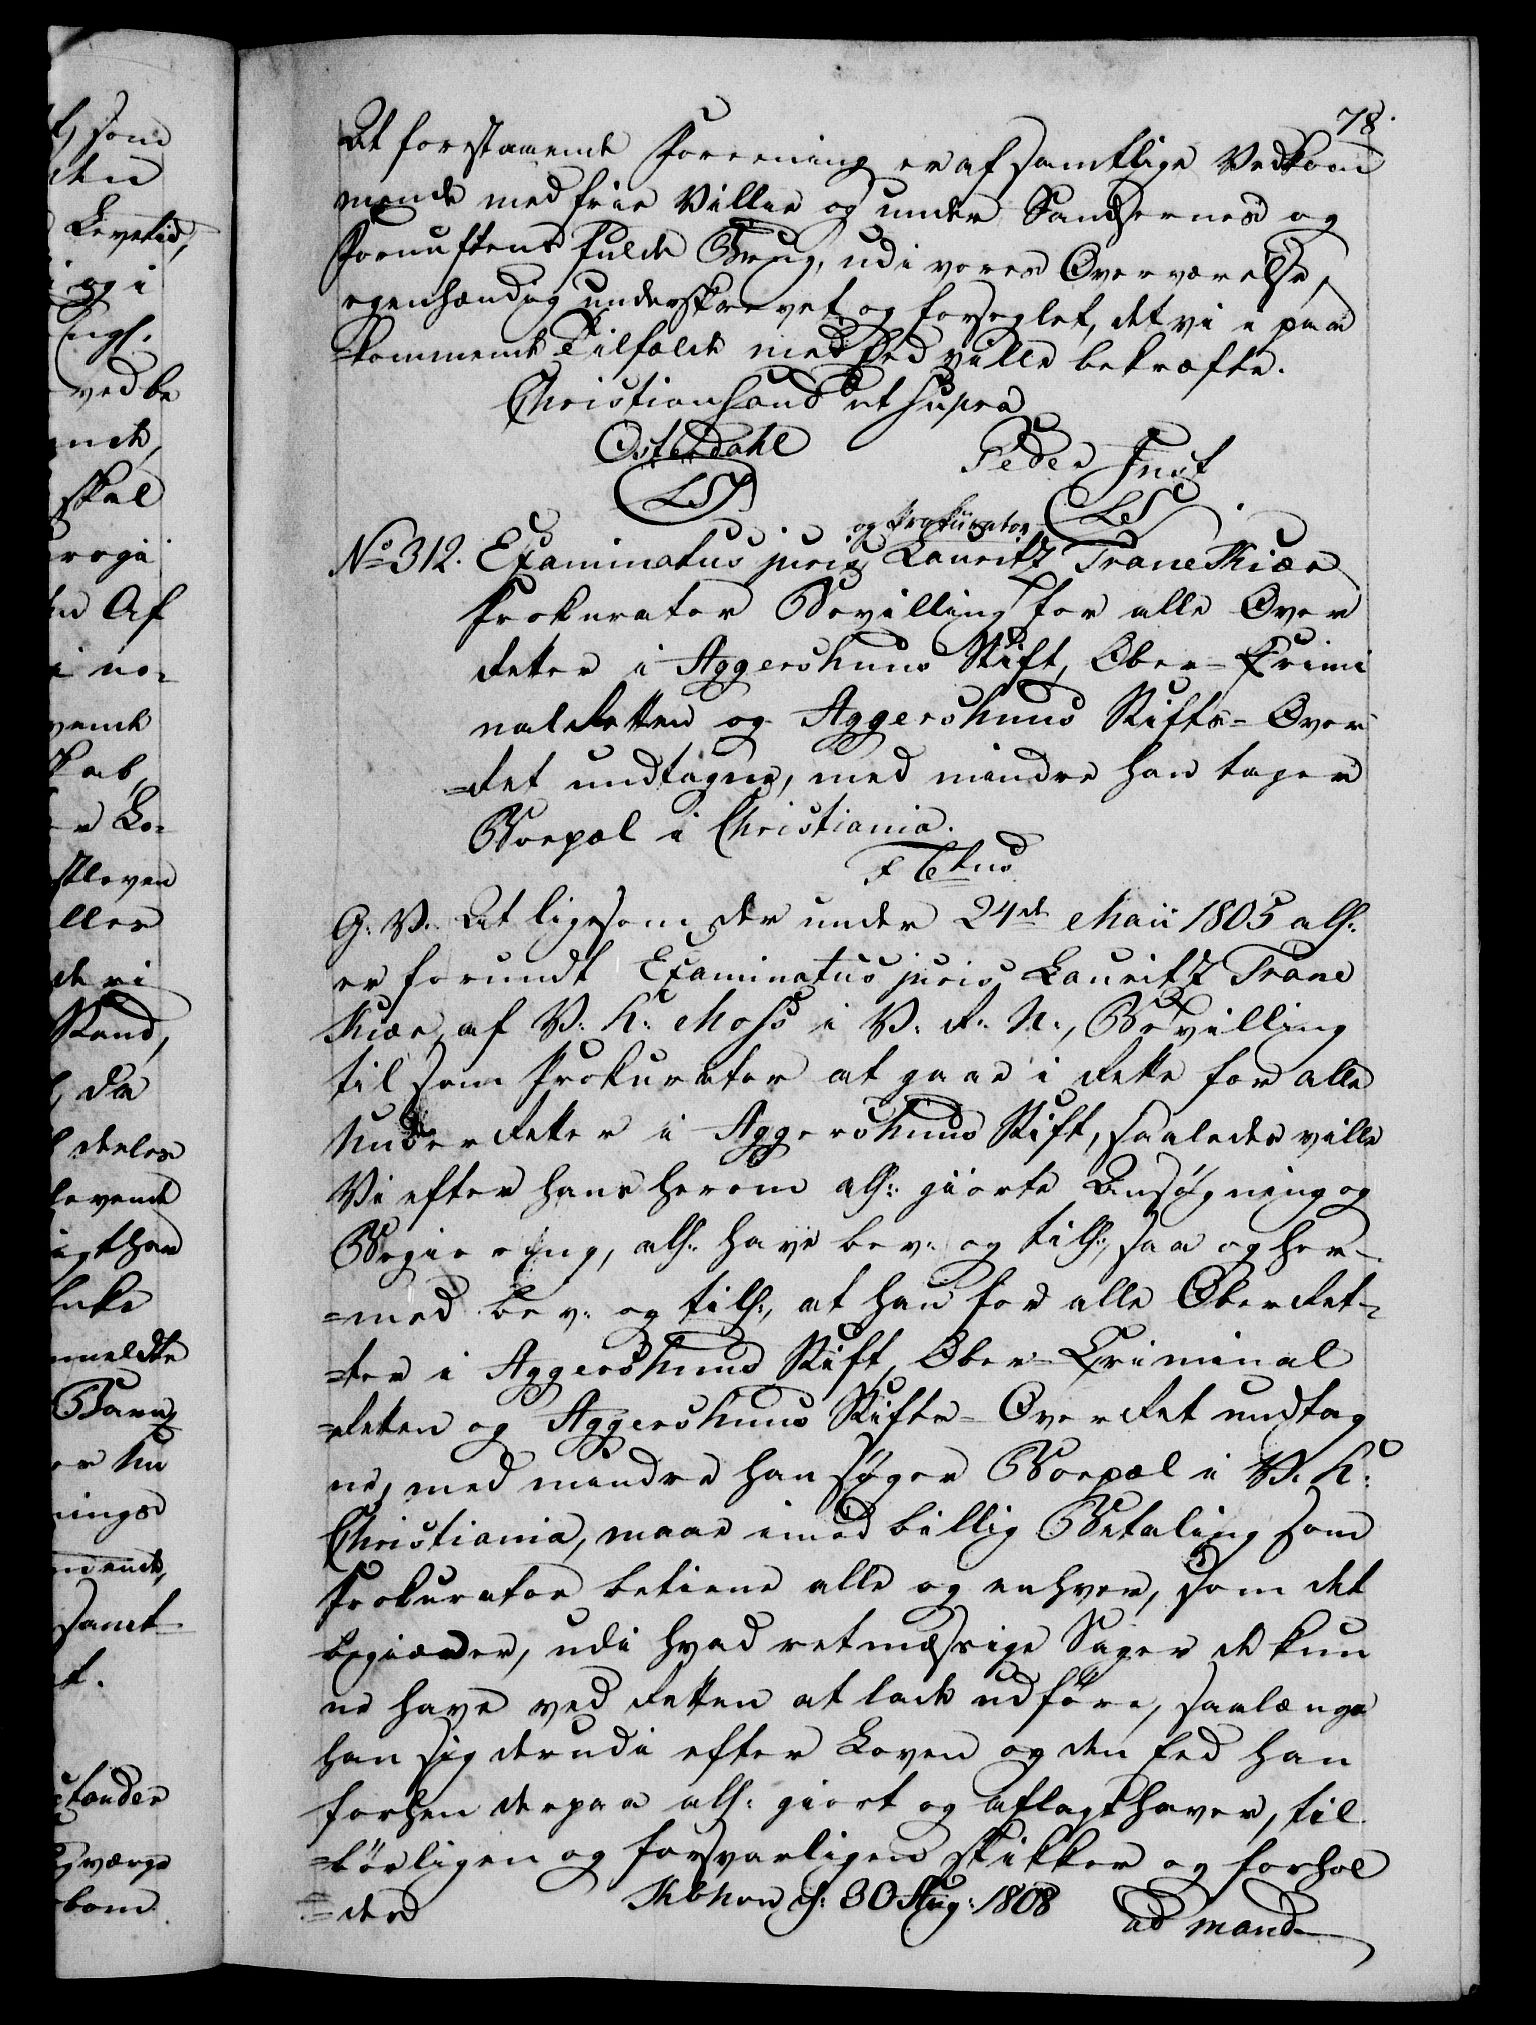 78.
At forestaaende Foreening er af samtlige Vedkom
mende med frie Villie og under Sandsernes og
Fornuftens fulde Brug, udi vores Overværelse,
egenhændig underskrevet og forseglet, det vi i paa
=kommende Tilfælde med Eed ville bekræfte.
Christiansand ut supra
Osterdahl Peder Just
LS LS
og Prokurator
No 312. Examinatus juris Lauritz Trane Kiær
Prokurator Bevilling for alle Over
Retter i Aggershuus Stift, Ober=Crimi
nal Retten og Aggershuus Stifts=Over
=Ret undtagne, med mindre han tager
Boepæl i Christiania.
G. V. At ligesom der under 24de Maii 1805 alh:
er forundt Examinatus juris Lauritz Trane
Kiær, af V: K: Moss i V: R: N:, Bevilling
til som Prokurator at gaae i Rette for alle
Under Retter i Aggershuus Stift, saaledes ville
Vi efter hans herom alh: giorte Ansøgning og
Begiering, alh: have bev: og tilh:, saa og her-
=med bev: og tilh:, at han for alle Ober Ret-
=ter i Aggershuus Stift, Ober=Criminal
=Retten og Aggershuus Stifts=Over Ret undtag
ne, med mindre han søger Boepæl i V: K:
Christiania, maae imod billig Betaling som
Prokurator betiene alle og enhver, som det
begiærer, udi hvad retmæssige Sager de kun
ne have ved Retten at lade udføre, saalænge
han sig derudi efter Loven og den Eed han
forhen derpaa alh: giort og aflagt haver, til
=børligen og forsvarligen skikker og forhol
=der Kbhvn d: 30 Aug: 1808 ad mand